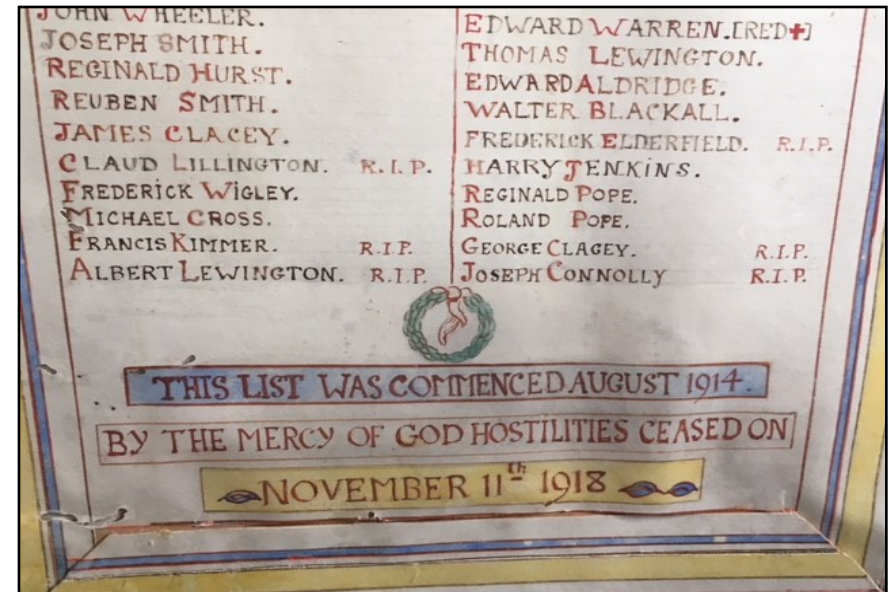 JOHN WHEELER.
JOSEPH SMITH.
REGINALD HURST.
REUBEN SMITH.
JAMES CLACEY.
CLAUD LILLINGTON. R.I.P.
FREDERICK WIGLEY.
MICHAEL CROSS.
FRANCIS KIMMER. R.I.P.
ALBERT LEWINGTON. R.I.P.
EDWARD WARREN.[RED✚]
THOMAS LEWINGTON.
EDWARD ALDRIDGE.
WALTER BLACKALL.
FREDERICK ELDERFIELD. R.I.P.
HARRY JENKINS.
REGINALD POPE.
ROLAND POPE.
GEORGE CLACEY. R.I.P.
JOSEPH CONNOLLY R.I.P.
THIS LIST WAS COMMENCED AUGUST 1914.
BY THE MERCY OF GOD HOSTILITIES CEASED ON
NOVEMBER 11th 1918